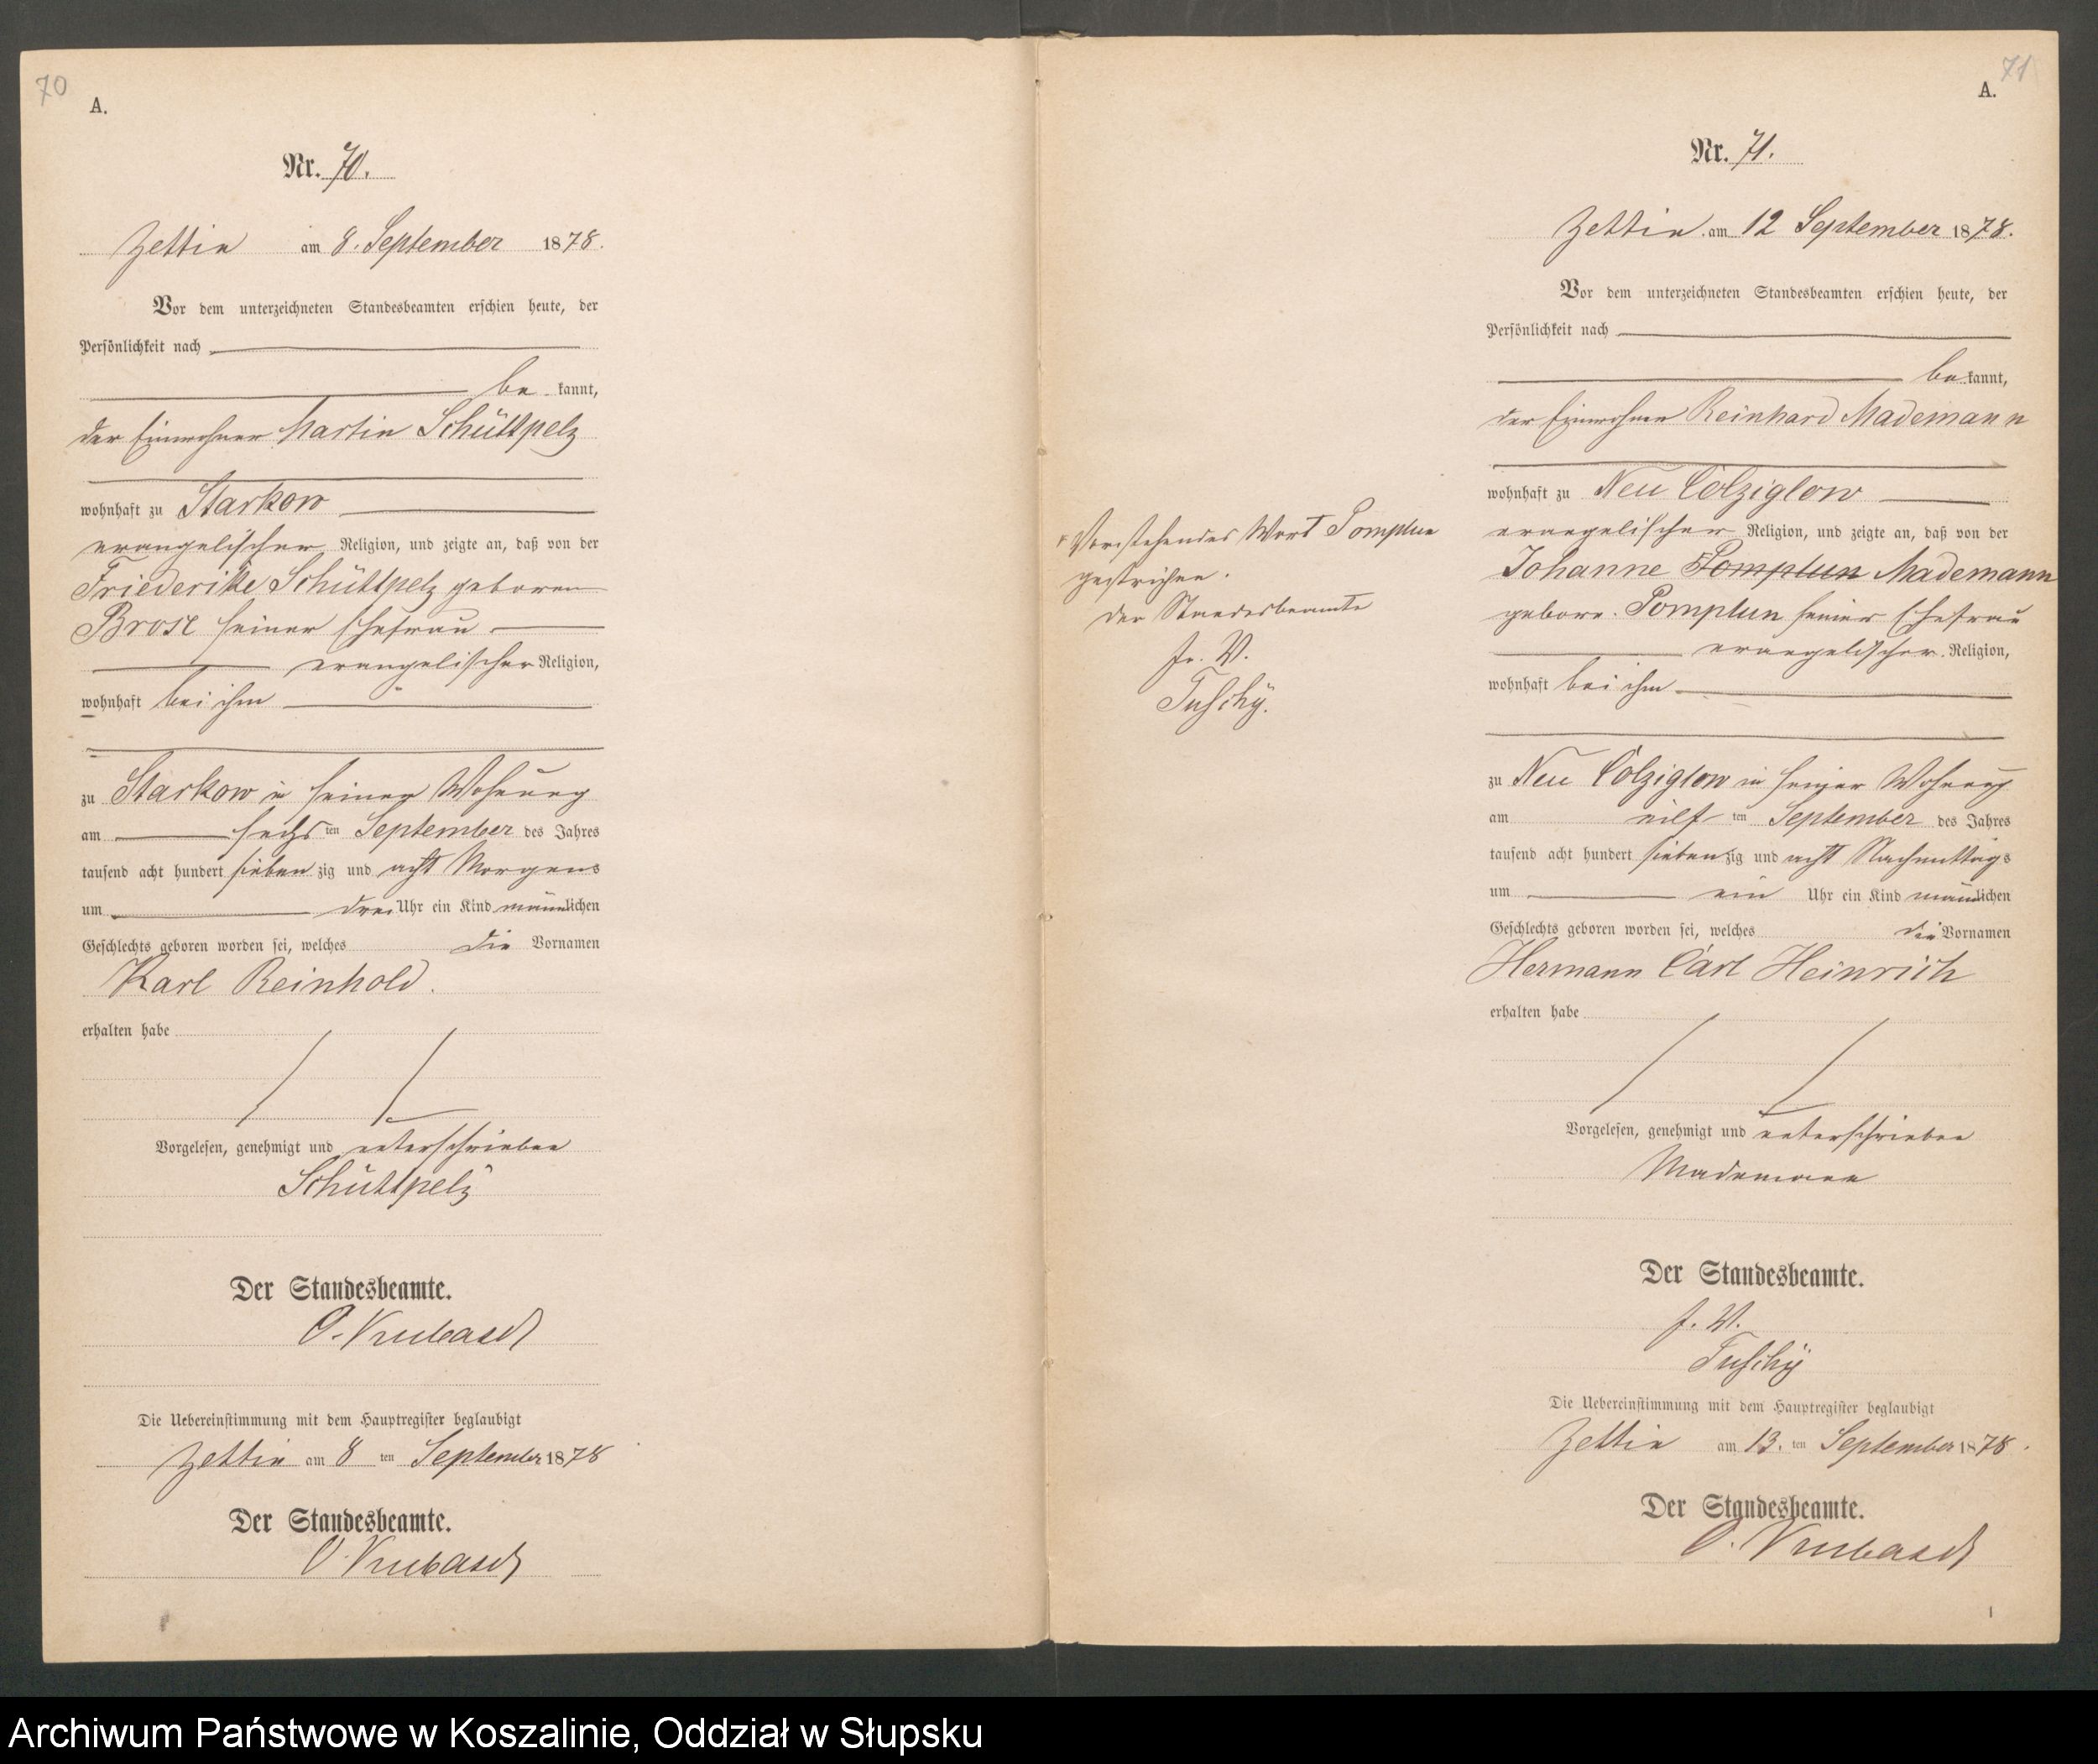 70
A.
Nr. 70.
Zettin am 8. September 1878.
Vor dem unterzeichneten Standesbeamten erschien heute, der
Persönlichkeit nach
be kannt,
der Einwohner Martin Schüttpelz
wohnhaft zu Starkow
evangelischer Religion, und zeigte an, daß von der
Friederike Schüttpelz geboren
Brose seiner Ehefrau
evangelischer Religion,
wohnhaft bei ihm
zu Starkow in seiner Wohnung
am sechs ten September des Jahres
tausend acht hundert sieben zig und acht Morgens
um drei Uhr ein Kind männlichen
Geschlechts geboren worden sei, welches die Vornamen
Karl Reinhold.
erhalten habe
Vorgelesen, genehmigt und unterschrieben
Schüttpelz
Der Standesbeamte.
Die Uebereinstimmung mit dem Hauptregister beglaubigt
Zettin am 8 ten September 1878
Der Standesbeamte.
Vorstehendes Wort Pomplun
gestrichen.
Der Standesbeamte
In V.
Tuschy.
71
A.
Nr. 71.
Zettin am 12 September 1878.
Vor dem unterzeichneten Standesbeamten erschien heute, der
Persönlichkeit nach
be kannt,
der Einwohner Reinhard Mademann
wohnhaft zu Neu Colziglow
evangelischer Religion, und zeigte an, daß von der
Johanne Pomplun Mademann
gebore. Pomplun seiner Ehefrau
evangelischer Religion,
wohnhaft bei ihm
zu Neu Colziglow in seiner Wohnung
am eilf ten September des Jahres
tausend acht hundert sieben zig und acht Nachmittags
um ein Uhr ein Kind männlichen
Geschlechts geboren worden sei, welches die Vornamen
Hermann Carl Heinrich
erhalten habe
Vorgelesen, genehmigt und unterschrieben
Mademann
Der Standesbeamte.
J. V.
Tuschy
Die Uebereinstimmung mit dem Hauptregister beglaubigt
Zettin am 13. ten September 1878.
Der Standesbeamte.
Archiwum Państwowe w Koszalinie, Oddział w Słupsku